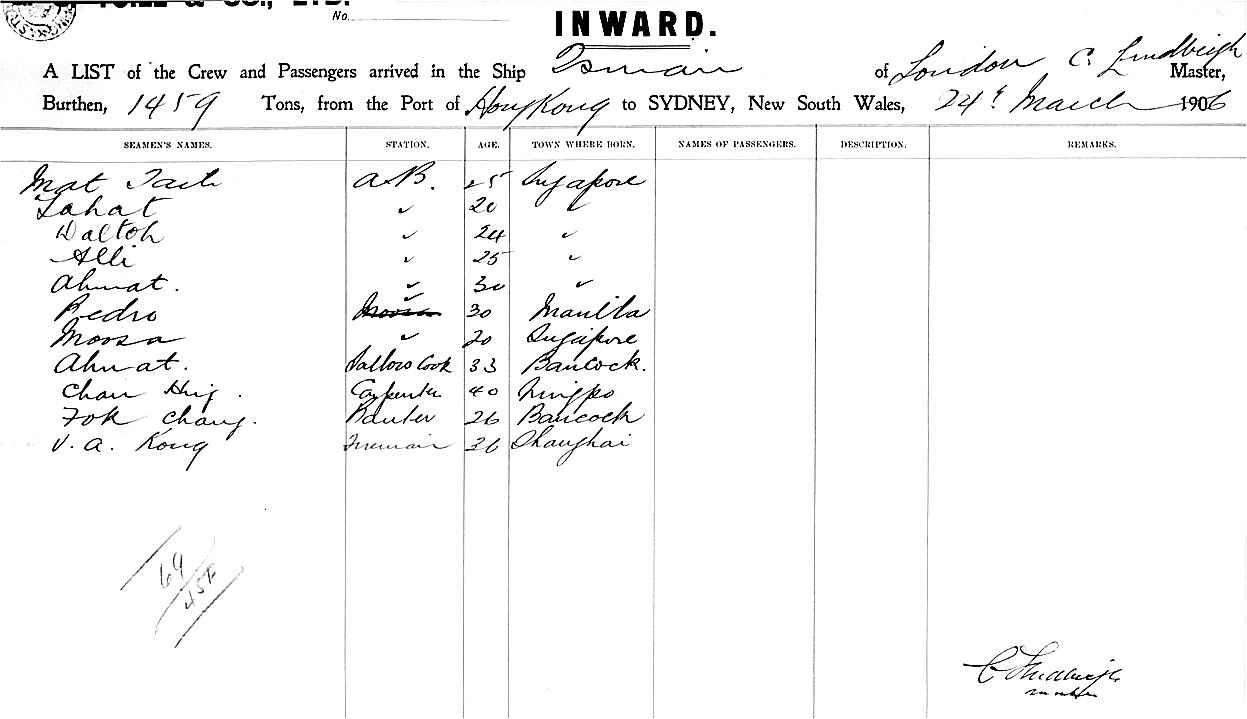 & CO., LTD.
No.
INWARD.
A LIST of the Crew and Passengers arrived in the Ship of London C. Lindbergh Master,
Burthen, 1459 Tons, from the Port of HongKong to SYDNEY, New South Wales, 24th March 1906
SEAMEN'S NAMES. STATION. AGE. TOWN WHERE BORN. NAMES OF PASSENGERS. DESCRIPTION. REMARKS.
Mat A.B. 25 Singapore
Lahat " 20 "
Daltoh " 24 "
Alli " 25 "
Ahmat. " 30 "
Pedro " 30 Manilla
Moosa " 20 Singapore
Ahmat. Sailors Cook 33 Bancock.
Chan Carpenter 40 Ningpo
Fok Chang. 26 Bancock
V. A. Kong Fireman 36 Shanghai
69
C
Master